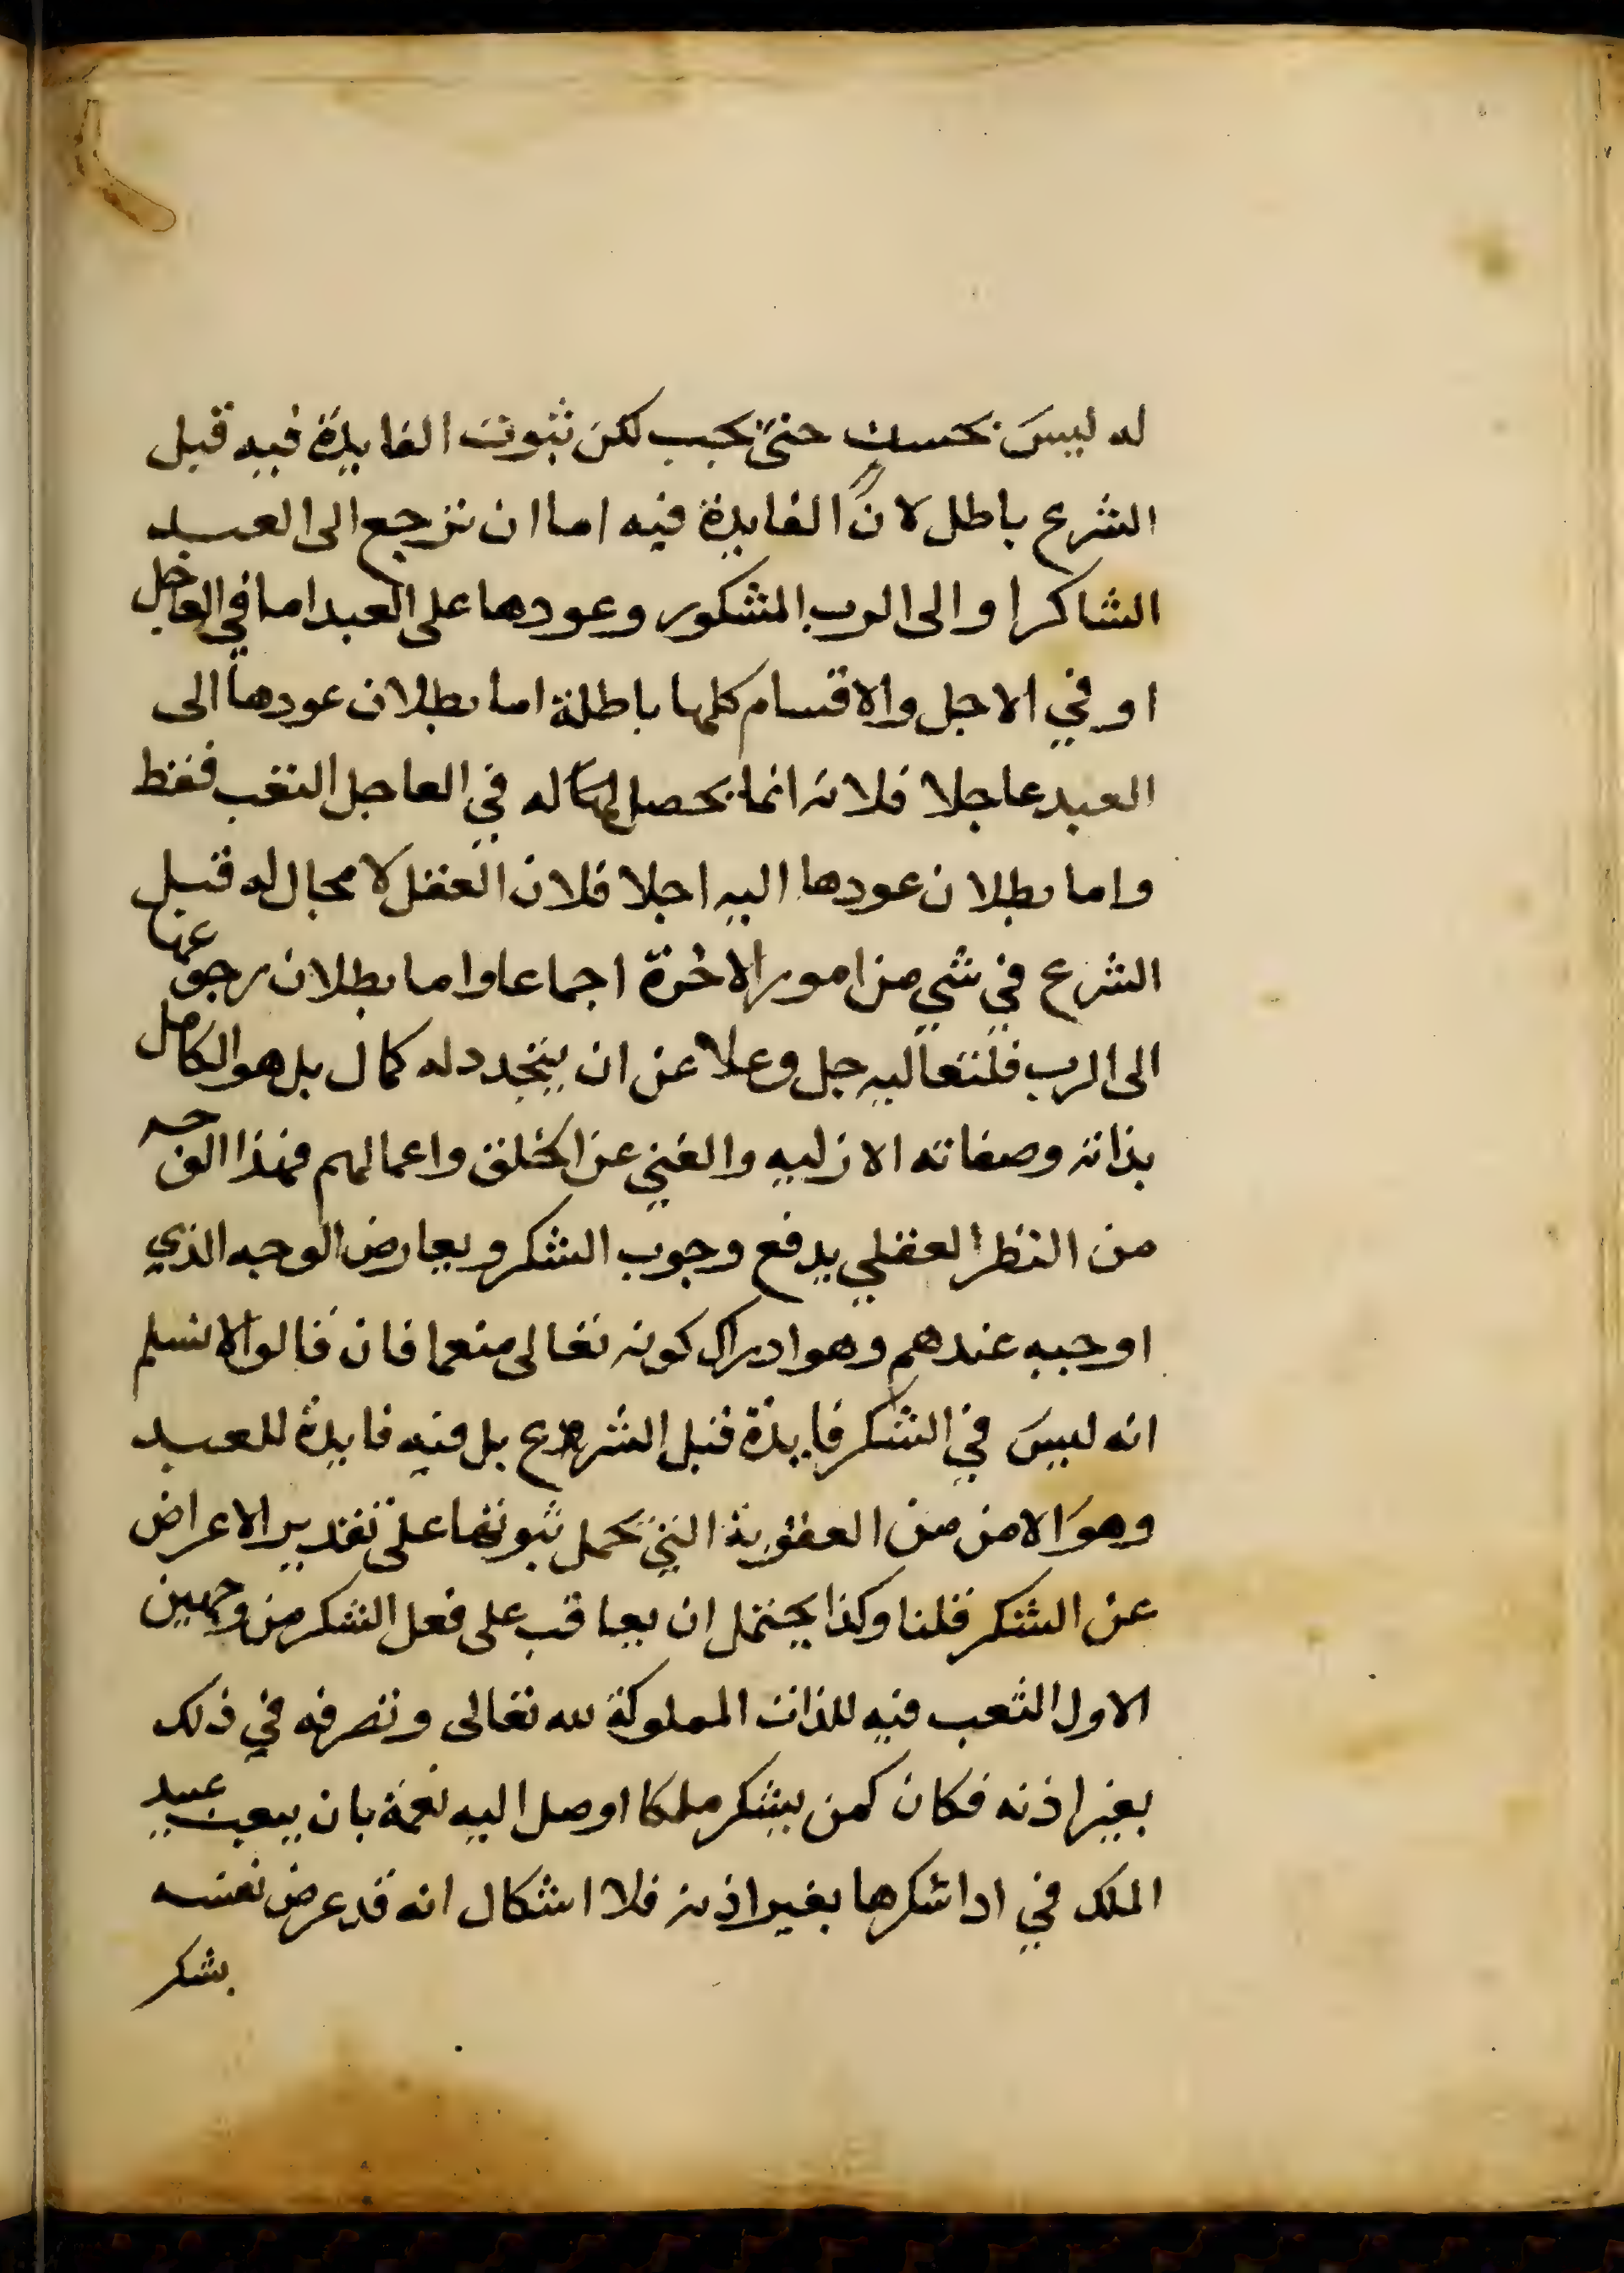 له ليس بحسن حتى يجب لكن ثبوت الفايدة فيه قبل
الشرع باطل لان الفايدة فيه اما ان ترجع الى العبد
الشاكر او الى الرب المشكور وعودها على العبد اما في العاجل
او في الاجل والاقسام كلها باطلة اما بطلان عودها الى
العبد عاجلا فلانه انما يحصل له في العاجل التعب فقط
واما بطلان عودها اليه اجلا فلان العقل لا مجال له قبل
الشرع في شي من امور الاخرة اجماعا واما بطلان رجوعها
الى الرب فلتعاليه جل وعلا عن ان يتجدد له كمال بل هو الكامل
بذاته وصفاته الازليه والغني عن الخلق واعمالهم فهذا الوجه
من النظر العقلي يدفع وجوب الشكر ويعارض الوجه الذي
اوجبه عندهم وهو ادراك كونه تعالى منعما فان قالوا لا نسلم
انه ليس في الشكر فايدة قبل الشرع بل فيه فايدة للعبد
وهو الامن من العقوبة التي يحمل ثبوتها على تقدير الاعراض
عن الشكر قلنا وكذا يحتمل ان يعاقب على فعل الشكر من وجهين
الاول التعب فيه للذات المملوكة لله تعالى وتصرفه في ذلك
بغير اذنه فكان كمن يشكر ملكا اوصل اليه نعمة بان يتعب عبيد
الملك في ادا شكرها بغير اذنه فلا اشكال انه قد عرض نفسه
بشكر